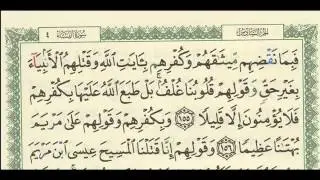 سُورَةُ النِّسَاءِ ٤
فَبِمَا نَقْضِهِم مِّيثَٰقَهُمْ وَكُفْرِهِم بِـَٔايَٰتِ ٱللَّهِ وَقَتْلِهِمُ ٱلْأَنۢبِيَآءَ
بِغَيْرِ حَقٍّ وَقَوْلِهِمْ قُلُوبُنَا غُلْفٌۢ ۚ بَلْ طَبَعَ ٱللَّهُ عَلَيْهَا بِكُفْرِهِمْ
فَلَا يُؤْمِنُونَ إِلَّا قَلِيلًا ١٥٥ وَبِكُفْرِهِمْ وَقَوْلِهِمْ عَلَىٰ مَرْيَمَ
بُهْتَٰنًا عَظِيمًا ١٥٦ وَقَوْلِهِمْ إِنَّا قَتَلْنَا ٱلْمَسِيحَ عِيسَى ٱبْنَ مَرْيَمَ